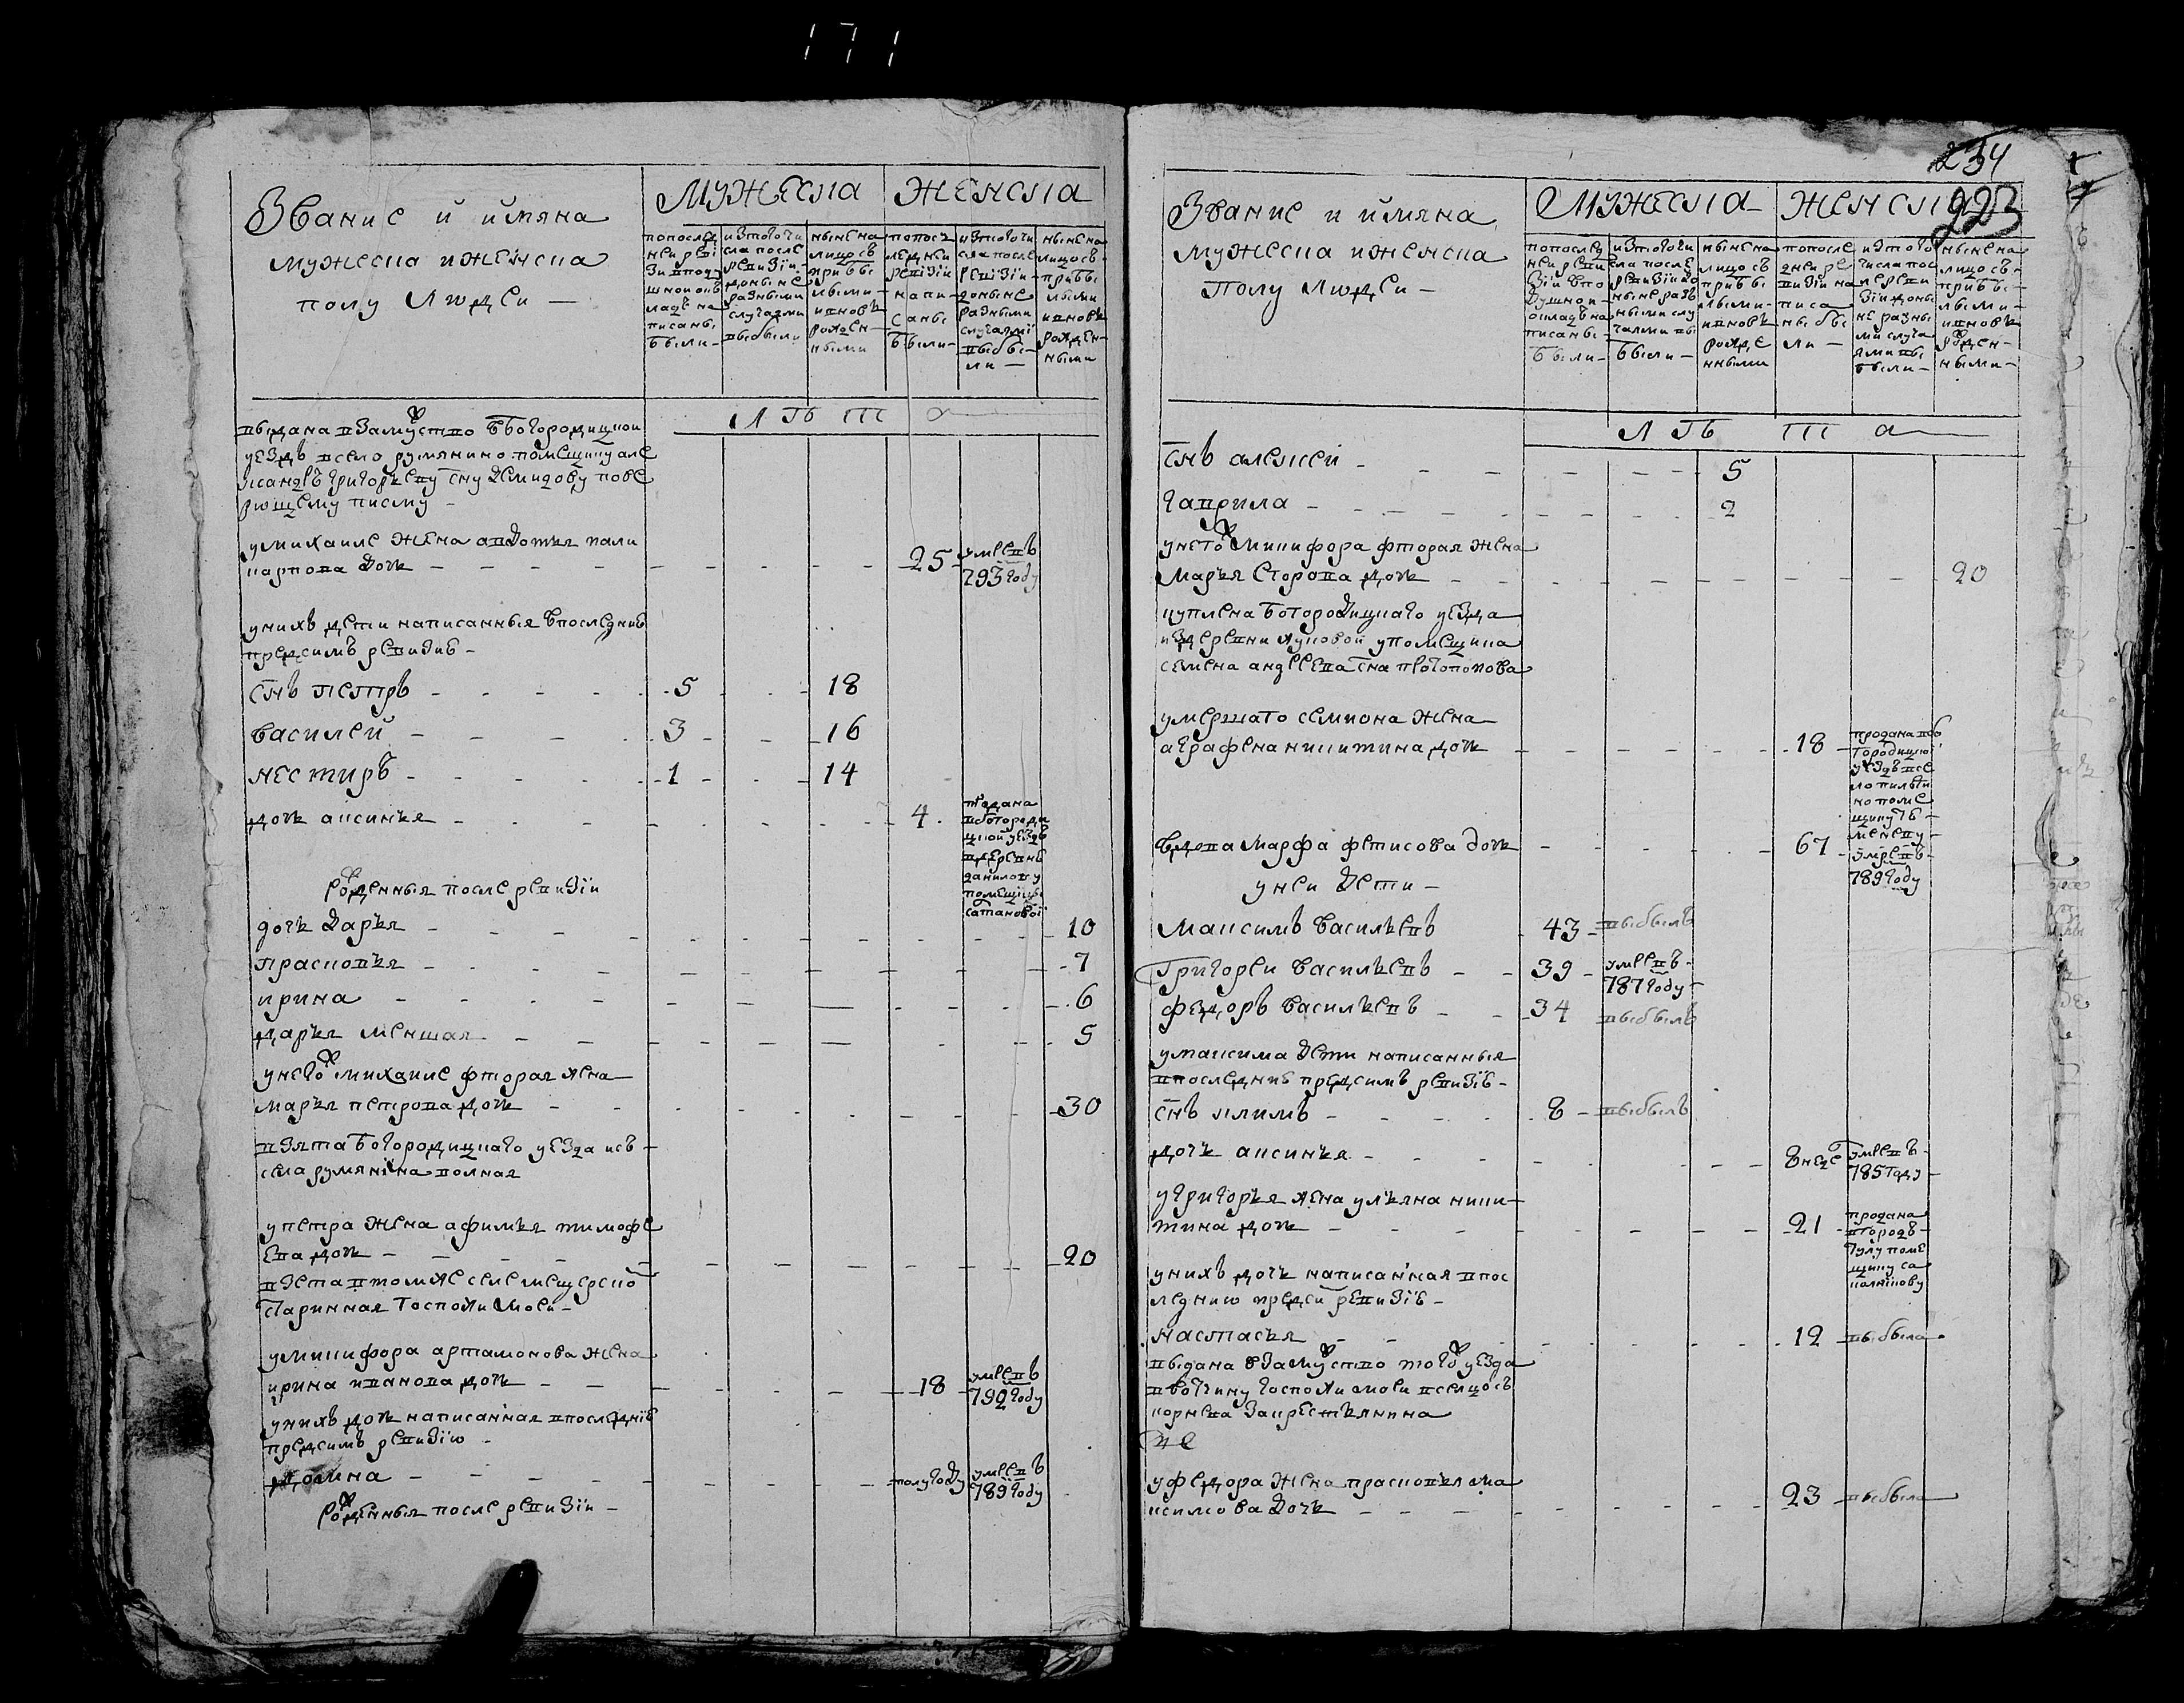 171
Звание и имяна
мужеска и женска
полу людеи —
Мужеска
Женска
попослед
неи реви
зи вподу
шном ок
ладе на
писаны
были —
изтогочи
сла после
ревизии
доныне
разными
случаями
выбыли
ныне на
лицо съ
прибы
лыми
и вновь
рожден
ными
попосл
леднеи
ревизии
напи
саны
были —
изтогочи
сла после
ревизии
доныне
разными
случаями
выбы
ли —
ныне на
лицо съ
прибы
лыми
и вновь
рожден
ными
лѣта
выдана взамуство вбогородицкои
уездъ всело румянино помещику але
ксандръ григорьеву сну демидову пове
рющему писму —
умихаиле жена авдотья поли
карпова дочь — 25 — умре въ
793 году
унихъ дети написанныя впоследнѣ
предсимъ ревизиѣ —
снъ петръ — 5 — 18
василеи — 3 — 16
нестиръ — 1 — 14
дочь аксинья — 4
отдана
вбогороди
цкои уездъ
вдеревнѣ
данилову
помещице
сатановои
рожденныя после ревизїи
дочь дарья — 10
прасковья — 7
ирина — 6
дарья меншая — 5
унего михаиле фторая жена
марья петрова дочь — 30
взята богородицкаго уезда исъ
села румянина волная
упетра жена афимья тимофе
ева дочь — 20
взета втомже селе мещерско
старинная госпожи моеи —
умикифора артамонова жена
ирина иванова дочь — 18 — умре въ
790 году
унихъ дочь написанная впоследнїе
предсимъ ревизїю —
домна — полугоду — умре въ
789 году
рожденныя после ревизїи —
234
223
Звание и имяна
мужеска и женска
полу людеи —
Мужеска
Женска
попослед
неи реви
зїи впо
душнои
окладе на
писаны
были —
изтогочи
сла после
ревизїи до
ныне раз
ными слу
чаями вы
были —
ныне на
лицо съ
прибы
лыми
и вновь
рожде
нными
попосле
днеи ре
визїи на
писа
ны бы
ли —
изтого
числа пос
ле реви
зїи доны
не разны
ми случа
ями вы
были —
ныне на
лицо съ
прибы
лыми
и вновь
рожден
ными —
лѣта
снъ алексеи — 5
гаврила — 2
унего микифора фторая жена
марья егорова дочь — 20
куплена богородицкаго уезда
издеревни луковои упомещика
семена андреева сна протопопова
умершаго семиона жена
аграфена никитина дочь — 18
продана вбо
городицкои
уездъ все
ло
но поме
щику
вдова марфа фетисова дочь — 67 — умре въ
789 году
унеи дети —
максимъ васильевъ — 43 — выбылъ
григореи васильевъ — 39 — умре въ
787 году
федоръ васильевъ — 34 — выбылъ
умаксима дети написанныя
впоследниѣ предсимъ ревизїѣ —
снъ климъ — 8 — выбылъ
дочь аксинья — 8 нед — умре въ
785 году
угригорья жена ульяна ники
тина дочь — 21
продана
вгородъ
тулу поме
щику са
унихъ дочь написанная впос
леднию предси ревизїѣ —
настасья — 12 — выбыла
выдана взамуство того уезда
ввотчину госпожи моеи вселцо съ
корнева закрестьянина
уфедора жена прасковья ма
ксимова дочь — 23 — выбыла